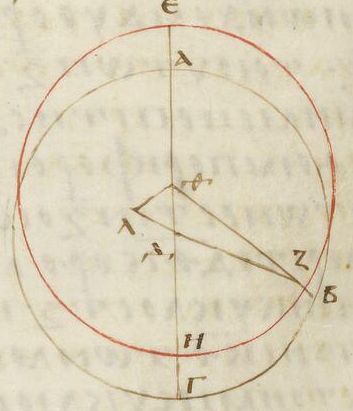 Є
Α
·θ·
Λ
·δ·
Ζ
Β
Η
Γ